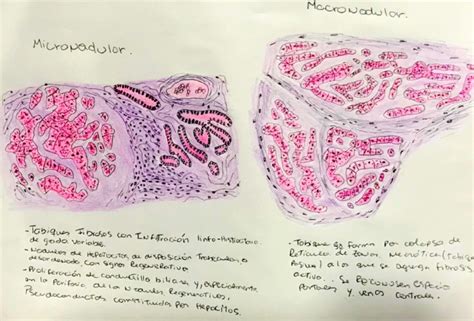 Micronodular.
- Tabiques fibrosos con Infiltración linfo-histiocitario
de grado variable.
- Nodulos de Hepatocitos de disposición Trabecular o
desordenado con signos Regenerativos
- Proliferación de conductillo biliares y, especialmente
en la Periferia de los Nodulos Regenerativos,
Pseudoconductos constituidos por Hepatocitos.
Macronodular.
- Tabique se forma por colapso de
Reticulo de
a la que se agrega fibrosis
activo. Se Reconocen Espacio
Portales y venas centrales.